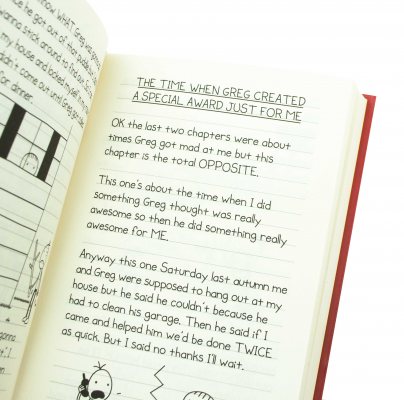 know WHAT Greg was gonna
he got out of that puddle
wanna stick around to find out. So
my house and locked myself in
didn't come out until Greg got
for dinner.
gonna
t". I
THE TIME WHEN GREG CREATED
A SPECIAL AWARD JUST FOR ME
OK the last two chapters were about
times Greg got mad at me but this
chapter is the total OPPOSITE.
This one's about the time when I did
something Greg thought was really
awesome so then he did something really
awesome for ME.
Anyway this one Saturday last autumn me
and Greg were supposed to hang out at my
house but he said he couldn't because he
had to clean his garage. Then he said if I
came and helped him we'd be done TWICE
as quick. But I said no thanks I'll wait.